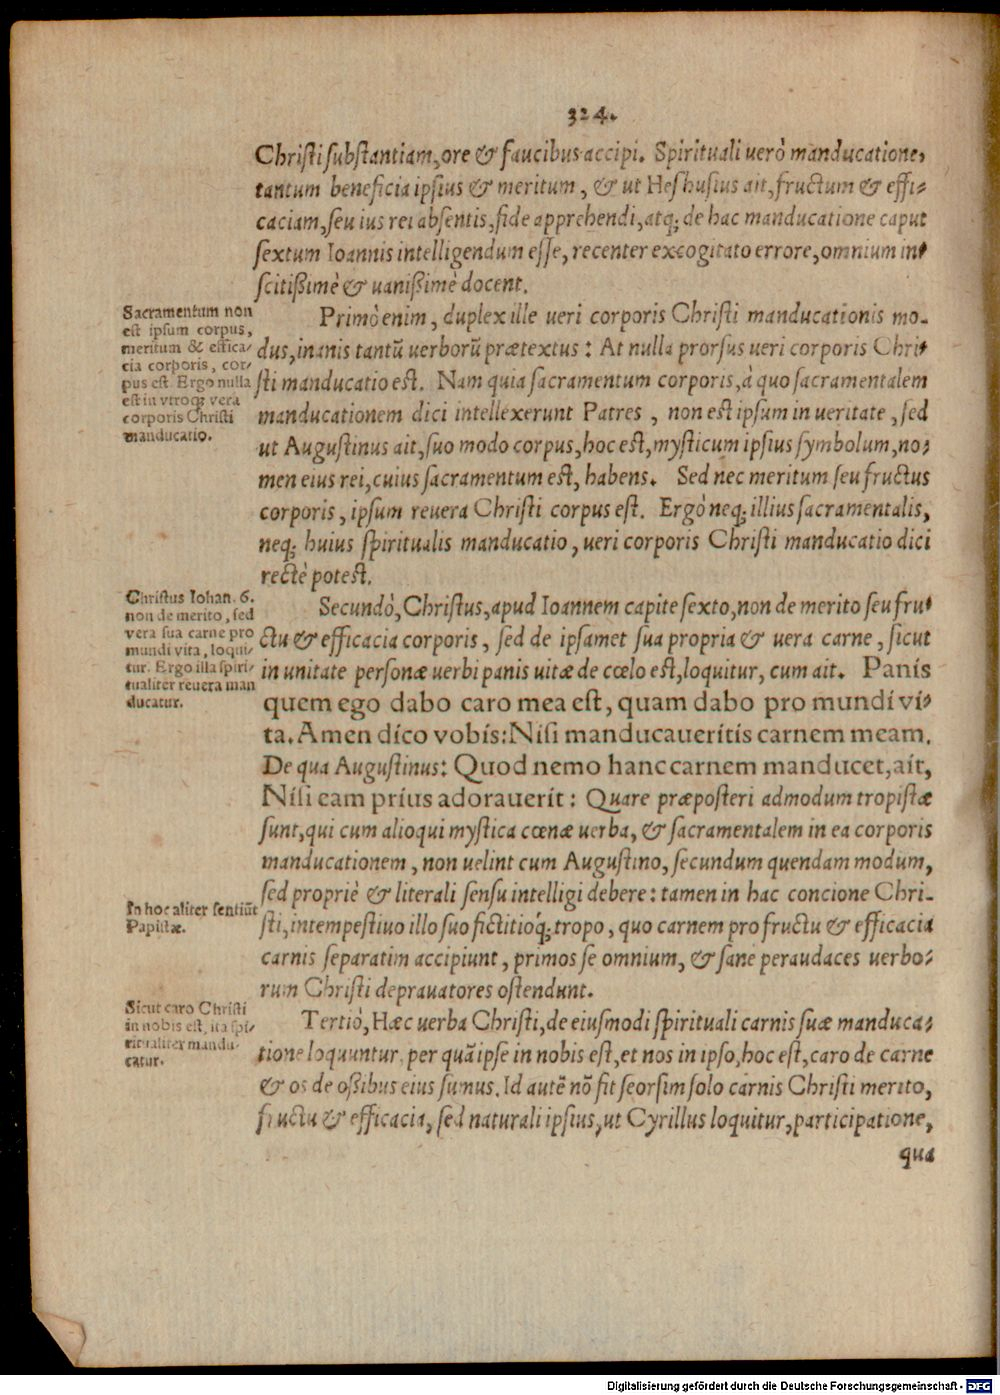 324.
Christi substantiam, ore & faucibus accipi. Spirituali uerò manducatione,
tantum beneficia ipsius & meritum, & ut Heshusius ait, fructum & effi-
caciam, seu ius rei absentis, fide apprehendi, atq; de hac manducatione caput
sextum Ioannis intelligendum esse, recenter excogitato errore, omnium in-
scitißimè & uanißimè docent.
Sacramentum non
est ipsum corpus,
meritum & effica-
cia corporis, cor-
pus est. Ergo nulla
est in vtroq; vera
corporis Christi
manducatio.
Primò enim, duplex ille ueri corporis Christi manducationis mo-
dus, inanis tantũ uerborũ prætextus: At nulla prorsus ueri corporis Chri-
sti manducatio est. Nam quia sacramentum corporis, à quo sacramentalem
manducationem dici intellexerunt Patres, non est ipsum in ueritate, sed
ut Augustinus ait, suo modo corpus, hoc est, mysticum ipsius symbolum, no-
men eius rei, cuius sacramentum est, habens. Sed nec meritum seu fructus
corporis, ipsum reuera Christi corpus est. Ergò neq; illius sacramentalis,
neq; huius spiritualis manducatio, ueri corporis Christi manducatio dici
rectè potest.
Christus Iohan. 6.
non de merito, sed
vera sua carne pro
mundi vita, loqui-
tur. Ergo illa spiri-
tualiter reuera man
ducatur.
Secundò, Christus, apud Ioannem capite sexto, non de merito seu fru-
ctu & efficacia corporis, sed de ipsamet sua propria & uera carne, sicut
in unitate personæ uerbi panis uitæ de cœlo est, loquitur, cum ait. Panis
quem ego dabo caro mea est, quam dabo pro mundi vi-
ta. Amen dico vobis: Nisi manducaueritis carnem meam.
De qua Augustinus: Quod nemo hanc carnem manducet, ait,
Nisi eam prius adorauerit: Quare præposteri admodum tropistæ
sunt, qui cum alioqui mystica cœnæ uerba, & sacramentalem in ea corporis
manducationem, non uelint cum Augustino, secundum quendam modum,
sed propriè & literali sensu intelligi debere: tamen in hac concione Chri-
sti, intempestiuo illo suo fictitioq́; tropo, quo carnem pro fructu & efficacia
carnis separatim accipiunt, primos se omnium, & sane peraudaces uerbo-
rum Christi deprauatores ostendunt.
In hoc aliter sentiũt
Papistæ.
Sicut caro Christi
in nobis est, ita spi-
ritualiter mandu-
catur.
Tertiò, Hæc uerba Christi, de eiusmodi spirituali carnis suæ manduca-
tione loquuntur, per quã ipse in nobis est, et nos in ipso, hoc est, caro de carne
& os de oßibus eius sumus. Id autẽ nõ fit seorsim solo carnis Christi merito,
fructu & efficacia, sed naturali ipsius, ut Cyrillus loquitur, participatione,
qua
Digitalisierung gefördert durch die Deutsche Forschungsgemeinschaft - DFG